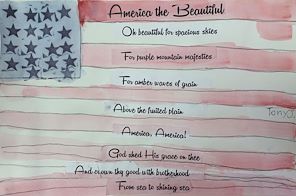 America the Beautiful
Oh beautiful for spacious skies
For purple mountain majesties
For amber waves of grain
Above the fruited plain
Tony
America, America!
God shed His grace on thee
And crown thy good with brotherhood
From sea to shining sea